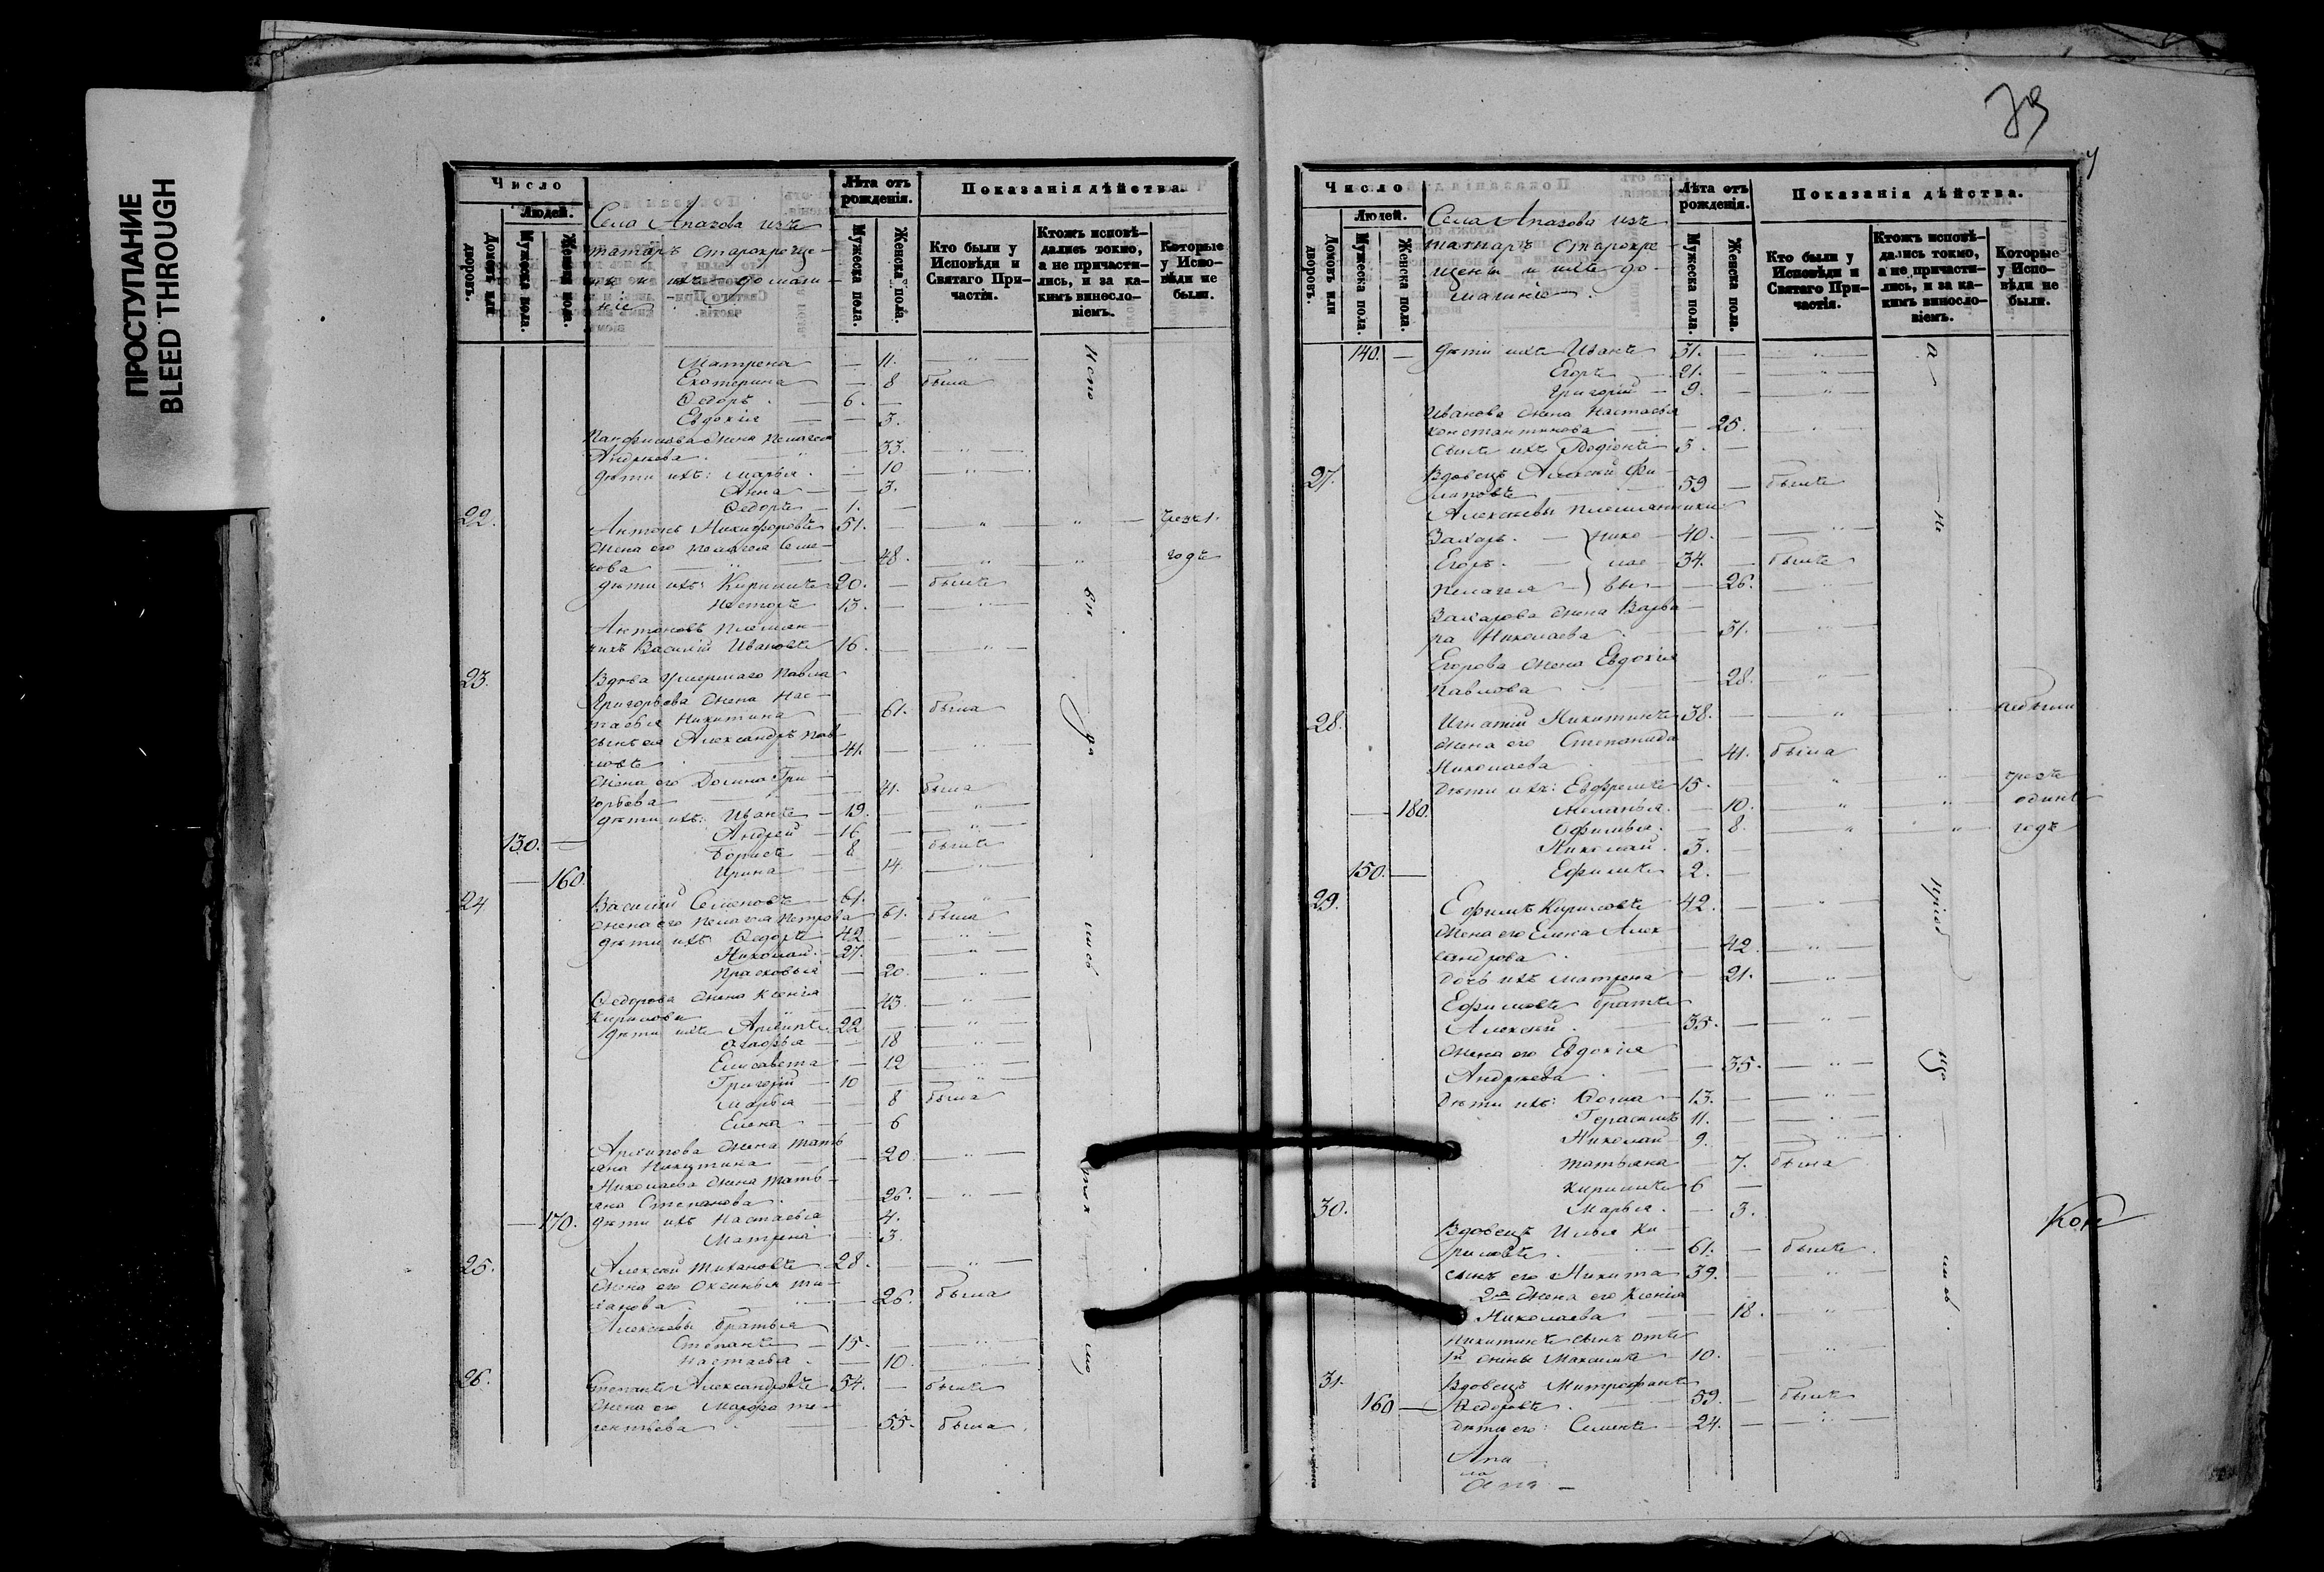 ПРОСТУПАНИЕ
BLEED THROUGH
Число
Людей.
Домовъ или дворовъ.
Мужеска пола.
Женска пола.
Села Апазова изъ
татаръ старокреще-
ны и ихъ домаш-
ніе.
Лѣта отъ рожденія.
Мужеска пола.
Женска пола.
Показанія дѣйства.
Кто были у Исповѣди и Святаго Причастія.
Ктожъ исповѣдались токмо, а не причастились, и за какимъ винословіемъ.
Которые у Исповѣди не были.
Матрена — 11. — " —
Екатерина — 8 была
Ѳедоръ. — 6. —
Евдокія — — 3.
Панфилова жена Пелагея
Андреева. — 33. — " —
дѣти ихъ: Марья. — 10 — " —
Анна — — 3.
Ѳедоръ — 1. —
22. Антонъ Никифоровъ 51. — " — " — чрезъ 1.
Жена его Пелагея Семе-
нова — — 48. — " — " годъ
дѣти ихъ: Кириллъ 20. — былъ
Несторъ 13. — " —
Антоновъ племян-
никъ Василій Ивановъ 16. — " —
23. Вдова умершаго Павла
Григорьева жена Нас-
тасья Никитина — 61. была
сынъ ея Александръ Пав-
ловъ 41. — " —
Жена его Домна Гри-
горьева — 41. была
дѣти ихъ: Иванъ — 19. — " —
Андрей — 16 — " —
130. — Борисъ — 8 — былъ
— 160. Ирина — — 14. — " —
24 Василій Семеновъ — 61. — " —
Жена его Пелагея Петрова 61. была
дѣти ихъ: Ѳедоръ — 42 — " —
Николай. — 27. — " —
Прасковья — 20. — " —
Ѳедорова жена Ксенія
Кирилова — 43. — " —
дѣти ихъ Архипъ 22 — " —
Агафья — — 18 — " —
Елисавета — 12 — " —
Григорій — 10 — " —
Марья — — 8 была
Елена — — 6
Архипова жена Тать
яна Никитина — 20 — " —
Николаева жена Тать-
яна Степанова. — 26. — " —
— 170. дѣти ихъ Настасья 4.
Матрена — 3.
25. Алексей Тихановъ 28. — " —
Жена его Оксинья Ти-
ханова — 26. была
Алексеевы братья
Степанъ — 15. — " —
Настасья. — 10. — " —
26. Степанъ Александровъ 54. — былъ
Жена его Марфа Те-
рентьева — 55. была.
Испо
вѣ
да
лись
ток
мо
79
Число
Людей.
Домовъ или дворовъ.
Мужеска пола.
Женска пола.
Села Апазова изъ
татаръ старокре-
щены и ихъ до-
машніе.
Лѣта отъ рожденія.
Мужеска пола.
Женска пола.
Показанія дѣйства.
Кто были у Исповѣди и Святаго Причастія.
Ктожъ исповѣдались токмо, а не причастились, и за какимъ винословіемъ.
Которые у Исповѣди не были.
140. — дѣти ихъ Иванъ 31. — " —
Егоръ — 21. — " —
Григорій — 9. — " —
Иванова жена Настасья
Константинова — 25. "
сынъ ихъ Родіонъ 3. —
27. Вдовецъ Алексей Фи-
липовъ 59 — былъ
Алексеевы племянники
Захаръ. — Нико 40. — " —
Егоръ. — лае 34. — былъ
Пелагея — вы — 26. "
Захарова жена Варва-
ра Николаева. 31. — " —
Егорова жена Евдокія
Павлова — 28. — " —
28. Игнатій Никитинъ 38. — " " небыли
Жена его Степанида
Николаева — 41. была
дѣти ихъ: Евфремъ 15. — " " чрезъ
— 180. Меланья. — 10. " " одинъ
Офимья. — 8. — " — " годъ
Николай. 3. —
150. — Ефимъ 2. —
29. Ефимъ Кириловъ 42. — " —
Жена его Елена Алек
сандрова. — 42 — " —
дочь ихъ Матрена — 21. — " —
Ефимовъ братъ
Алексей. 35. — " —
Жена его Евдокія
Андреева. — 35. — " —
дѣти ихъ: Ѳома — 13. — " —
Герасимъ 11. — " —
Николай 9. — " —
Татьяна — 7. была
Кирилъ 6 —
Марья. — 3.
30. Вдовецъ Илья Ки-
риловъ. — 61. — былъ.
сынъ его Никита 39. — " —
2а жена его Ксенія
Николаева — 18. — " —
Никитинъ сынъ отъ
1й жены Максимъ 10. — " —
31. Вдовецъ Митрофанъ
160 — Ѳедоровъ. 59. — былъ
дѣти его: Семенъ — 24. — " —
Апа
ла
Апа —
а
не
прiоб
ще
лись.
Кон